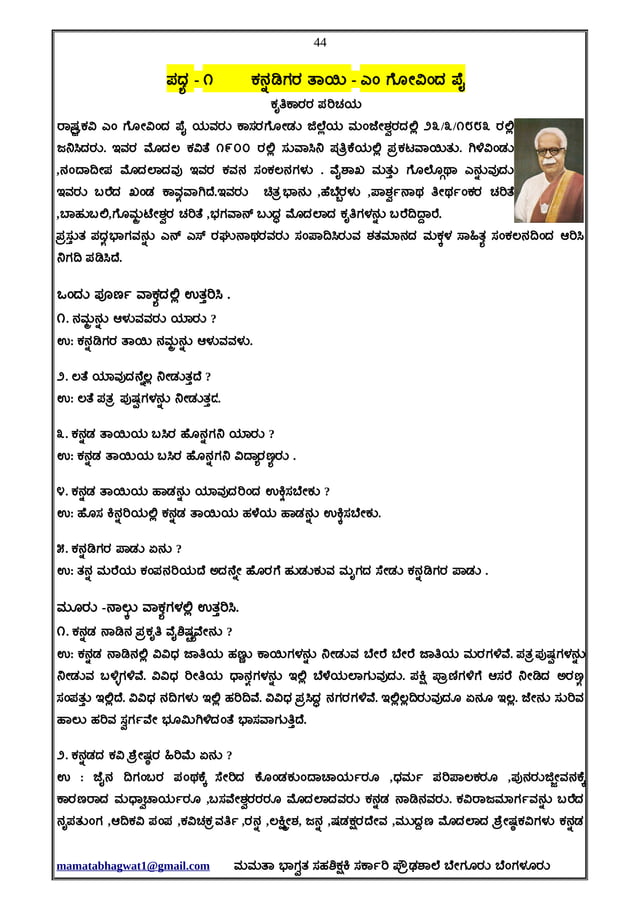 44
ಪದ್ಯ - ೧ ಕನ್ನಡಿಗರ ತಾಯಿ - ಎಂ ಗೋವಿಂದ ಪೈ
ಕೃತಿಕಾರರ ಪರಿಚಯ
ರಾಷ್ಟ್ರಕವಿ ಎಂ ಗೋವಿಂದ ಪೈ ಯವರು ಕಾಸರಗೋಡು ಜಿಲ್ಲೆಯ ಮಂಜೇಶ್ವರದಲ್ಲಿ ೨೩/೩/೧೮೮೩ ರಲ್ಲಿ
ಜನಿಸಿದರು. ಇವರ ಮೊದಲ ಕವಿತೆ ೧೯೦೦ ರಲ್ಲಿ ಸುವಾಸಿನಿ ಪತ್ರಿಕೆಯಲ್ಲಿ ಪ್ರಕಟವಾಯಿತು. ಗಿಳಿವಿಂಡು
,ನಂದಾದೀಪ ಮೊದಲಾದವು ಇವರ ಕವನ ಸಂಕಲನಗಳು . ವೈಶಾಖ ಮತ್ತು ಗೊಲ್ಗೊಥಾ ಎನ್ನುವುದು
ಇವರು ಬರೆದ ಖಂಡ ಕಾವ್ಯವಾಗಿದೆ.ಇವರು ಚಿತ್ರಭಾನು ,ಹೆಬ್ಬೆರಳು ,ಪಾರ್ಶ್ವನಾಥ ತೀರ್ಥಂಕರ ಚರಿತೆ
,ಬಾಹುಬಲಿ,ಗೊಮ್ಮಟೇಶ್ವರ ಚರಿತೆ ,ಭಗವಾನ್ ಬುದ್ಧ ಮೊದಲಾದ ಕೃತಿಗಳನ್ನು ಬರೆದಿದ್ದಾರೆ.
ಪ್ರಸ್ತುತ ಪದ್ಯಭಾಗವನ್ನು ಎನ್ ಎಸ್ ರಘುನಾಥರವರು ಸಂಪಾದಿಸಿರುವ ಶತಮಾನದ ಮಕ್ಕಳ ಸಾಹಿತ್ಯ ಸಂಕಲನದಿಂದ ಆರಿಸಿ
ನಿಗದಿ ಪಡಿಸಿದೆ.
ಒಂದು ಪೂರ್ಣ ವಾಕ್ಯದಲ್ಲಿ ಉತ್ತರಿಸಿ .
೧. ನಮ್ಮನ್ನು ಆಳುವವರು ಯಾರು ?
ಉ: ಕನ್ನಡಿಗರ ತಾಯಿ ನಮ್ಮನ್ನು ಆಳುವವಳು.
೨. ಲತೆ ಯಾವುದನ್ನೆಲ್ಲ ನೀಡುತ್ತದೆ ?
ಉ: ಲತೆ ಪತ್ರ ಪುಷ್ಪಗಳನ್ನು ನೀಡುತ್ತದೆ.
೩. ಕನ್ನಡ ತಾಯಿಯ ಬಸಿರ ಹೊನ್ನಗನಿ ಯಾರು ?
ಉ: ಕನ್ನಡ ತಾಯಿಯ ಬಸಿರ ಹೊನ್ನಗನಿ ವಿದ್ಯಾರಣ್ಯರು .
೪. ಕನ್ನಡ ತಾಯಿಯ ಹಾಡನ್ನು ಯಾವುದರಿಂದ ಉಕ್ಕಿಸಬೇಕು ?
ಉ: ಹೊಸ ಕಿನ್ನರಿಯಲ್ಲಿ ಕನ್ನಡ ತಾಯಿಯ ಹಳೆಯ ಹಾಡನ್ನು ಉಕ್ಕಿಸಬೇಕು.
೫. ಕನ್ನಡಿಗರ ಪಾಡು ಏನು ?
ಉ: ತನ್ನ ಮರೆಯ ಕಂಪನರಿಯದೆ ಅದನ್ನೇ ಹೊರಗೆ ಹುಡುಕುವ ಮೃಗದ ಸೇಡು ಕನ್ನಡಿಗರ ಪಾಡು .
ಮೂರು -ನಾಲ್ಕು ವಾಕ್ಯಗಳಲ್ಲಿ ಉತ್ತರಿಸಿ.
೧. ಕನ್ನಡ ನಾಡಿನ ಪ್ರಕೃತಿ ವೈಶಿಷ್ಟ್ಯವೇನು ?
ಉ: ಕನ್ನಡ ನಾಡಿನಲ್ಲಿ ವಿವಿಧ ಜಾತಿಯ ಹಣ್ಣು ಕಾಯಿಗಳನ್ನು ನೀಡುವ ಬೇರೆ ಬೇರೆ ಜಾತಿಯ ಮರಗಳಿವೆ. ಪತ್ರಪುಷ್ಪಗಳನ್ನು
ನೀಡುವ ಬಳ್ಳಿಗಳಿವೆ. ವಿವಿಧ ರೀತಿಯ ಧಾನ್ಯಗಳನ್ನು ಇಲ್ಲಿ ಬೆಳೆಯಲಾಗುವುದು. ಪಕ್ಷಿ ಪ್ರಾಣಿಗಳಿಗೆ ಆಸರೆ ನೀಡಿದ ಅರಣ್ಯ
ಸಂಪತ್ತು ಇಲ್ಲಿದೆ. ವಿವಿಧ ನದಿಗಳು ಇಲ್ಲಿ ಹರಿದಿವೆ. ವಿವಿಧ ಪ್ರಸಿದ್ಧ ನಗರಗಳಿವೆ. ಇಲ್ಲಿಲ್ಲದಿರುವುದೂ ಏನೂ ಇಲ್ಲ. ಜೇನು ಸುರಿವ
ಹಾಲು ಹರಿವ ಸ್ವರ್ಗವೇ ಭೂಮಿಗಿಳಿದಂತೆ ಭಾಸವಾಗುತ್ತಿದೆ.
೨. ಕನ್ನಡದ ಕವಿ ಶ್ರೇಷ್ಠರ ಹಿರಿಮೆ ಏನು ?
ಉ : ಜೈನ ದಿಗಂಬರ ಪಂಥಕ್ಕೆ ಸೇರಿದ ಕೊಂಡಕುಂದಾಚಾರ್ಯರೂ ,ಧರ್ಮ ಪರಿಪಾಲಕರೂ ,ಪುನರುಜ್ಜೀವನಕ್ಕೆ
ಕಾರಣರಾದ ಮಧ್ವಾಚಾರ್ಯರೂ ,ಬಸವೇಶ್ವರರರೂ ಮೊದಲಾದವರು ಕನ್ನಡ ನಾಡಿನವರು. ಕವಿರಾಜಮಾರ್ಗವನ್ನು ಬರೆದ
ನೃಪತುಂಗ ,ಆದಿಕವಿ ಪಂಪ ,ಕವಿಚಕ್ರವರ್ತಿ ,ರನ್ನ ,ಲಕ್ಷ್ಮೀಶ, ಜನ್ನ ,ಷಡಕ್ಷರದೇವ ,ಮುದ್ದಣ ಮೊದಲಾದ ಶ್ರೇಷ್ಠಕವಿಗಳು ಕನ್ನಡ
mamatabhagwat1@gmail.com ಮಮತಾ ಭಾಗ್ವತ ಸಹಶಿಕ್ಷಕಿ ಸರ್ಕಾರಿ ಪ್ರೌಢಶಾಲೆ ಬೇಗೂರು ಬೆಂಗಳೂರು